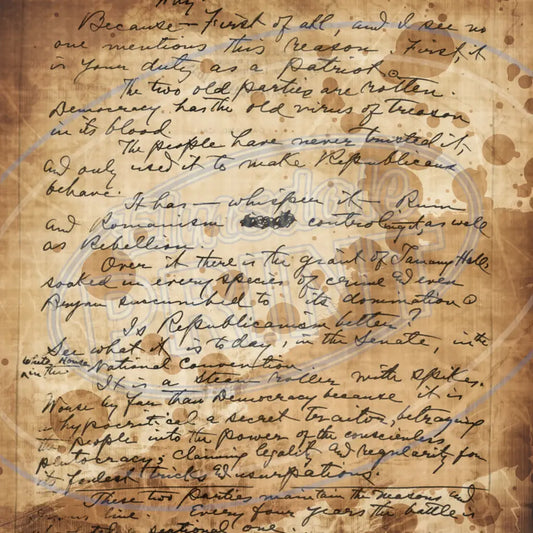 Why.
Because—First of all, and I see no
one mentions this reason. First, it
is your duty as a Patriot.
The two old parties are rotten.
Democracy has the old virus of treason
in its blood.
The people have never trusted it,
and only used it to make Republicans
behave.
It has — whisper it — Rum
and Romanism controling it as well
as Rebellion.
Over it there is the grant of Tammany Hall
soaked in every species of crime & even
Bryan succumbed to its domination
Is Republicanism better?
See what it is today, in the Senate, in the
White House
in the National Convention.
It is a steam roller with spikes.
Worse by far than Democracy because it is
hypocritical a secret traitor, betraying
the people into the power of the conscienless
plutocracy; claiming legality and regularity for
its foulest tricks & usurpations.
These two Parties maintain the
line. Every four years the battle is
a sectional one.